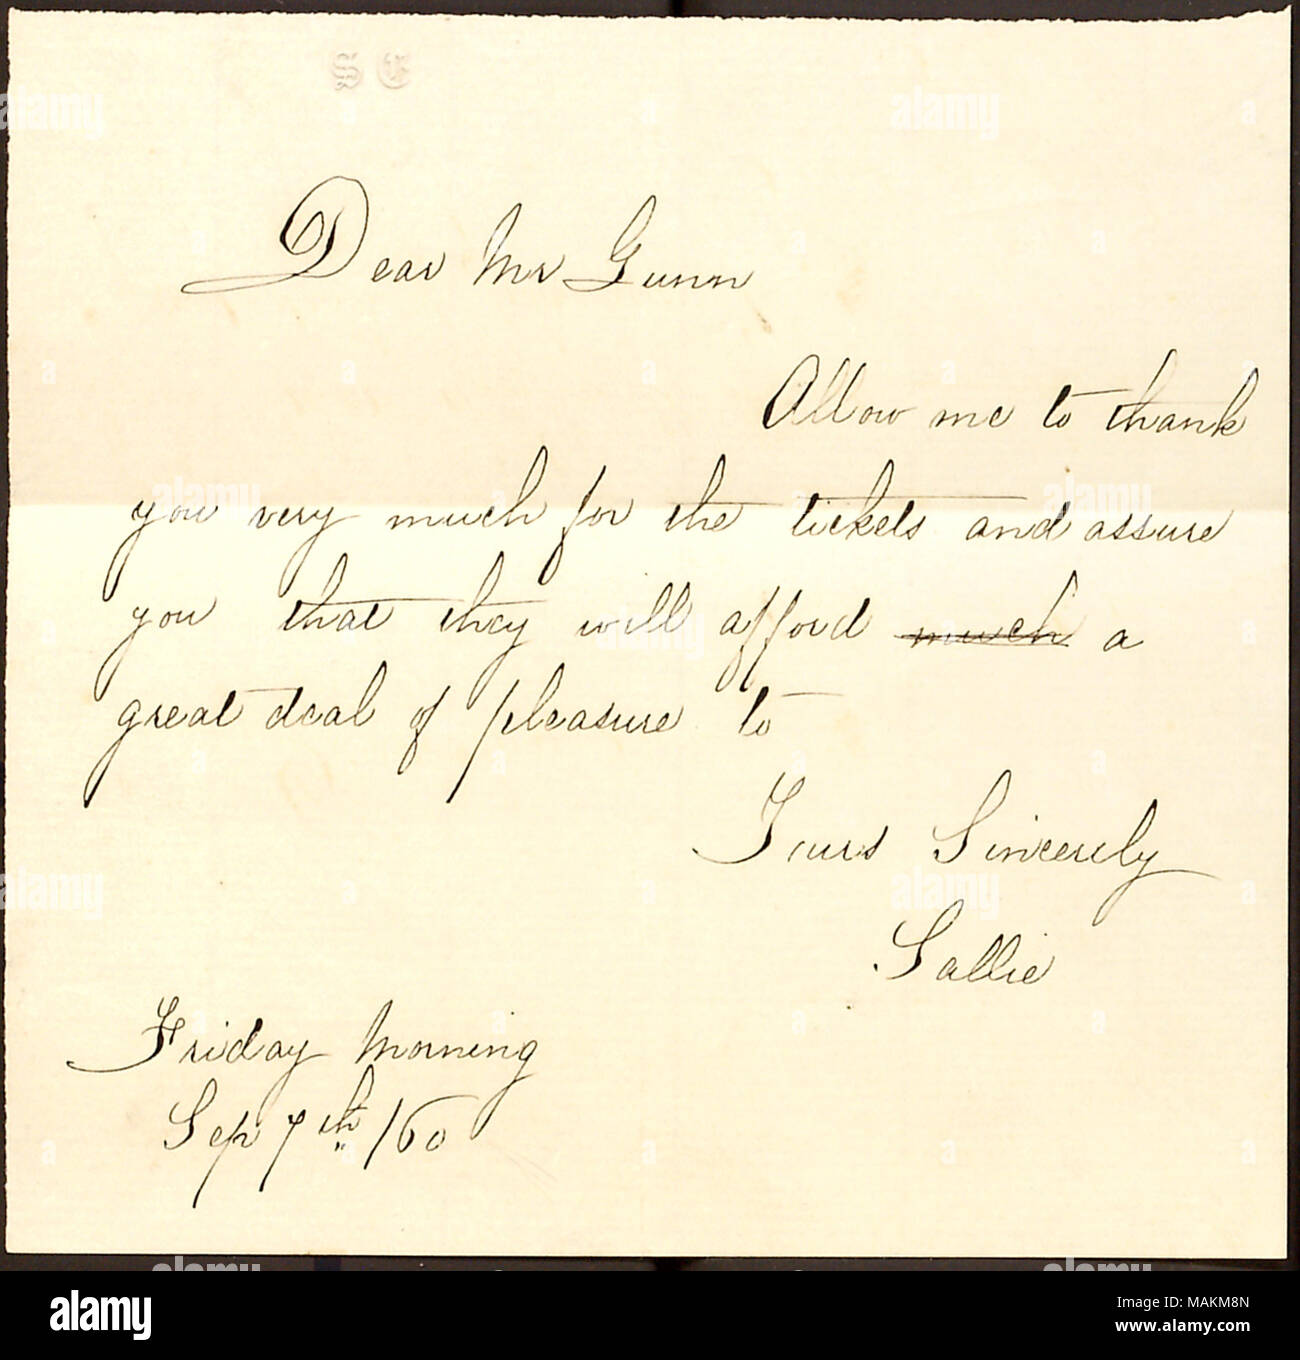 S E
Dear Mr Gunn
Allow me to thank
you very much for the tickets and assure
you that they will afford ~~much~~ a
great deal of pleasure to
Yours Sincerely
Sallie
Friday Morning
Sep 7th /60
alamy
Image ID: MAKM8N
www.alamy.com